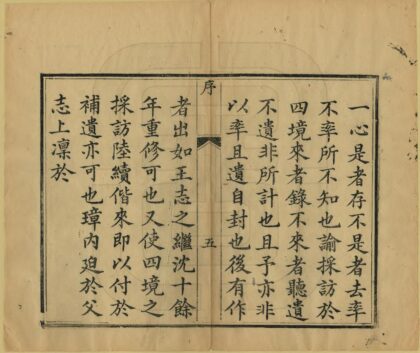 一心是者存不是者去率
不率所不知也諭採訪於
四境來者錄不來者聽遺
不遺非所計也且予亦非
以率且遺自封也後有作
序
五
者出如王志之繼沈十餘
年重修可也又使四境之
採訪陸續偕來即以付於
補遺亦可也璋內廹於父
志上凛於